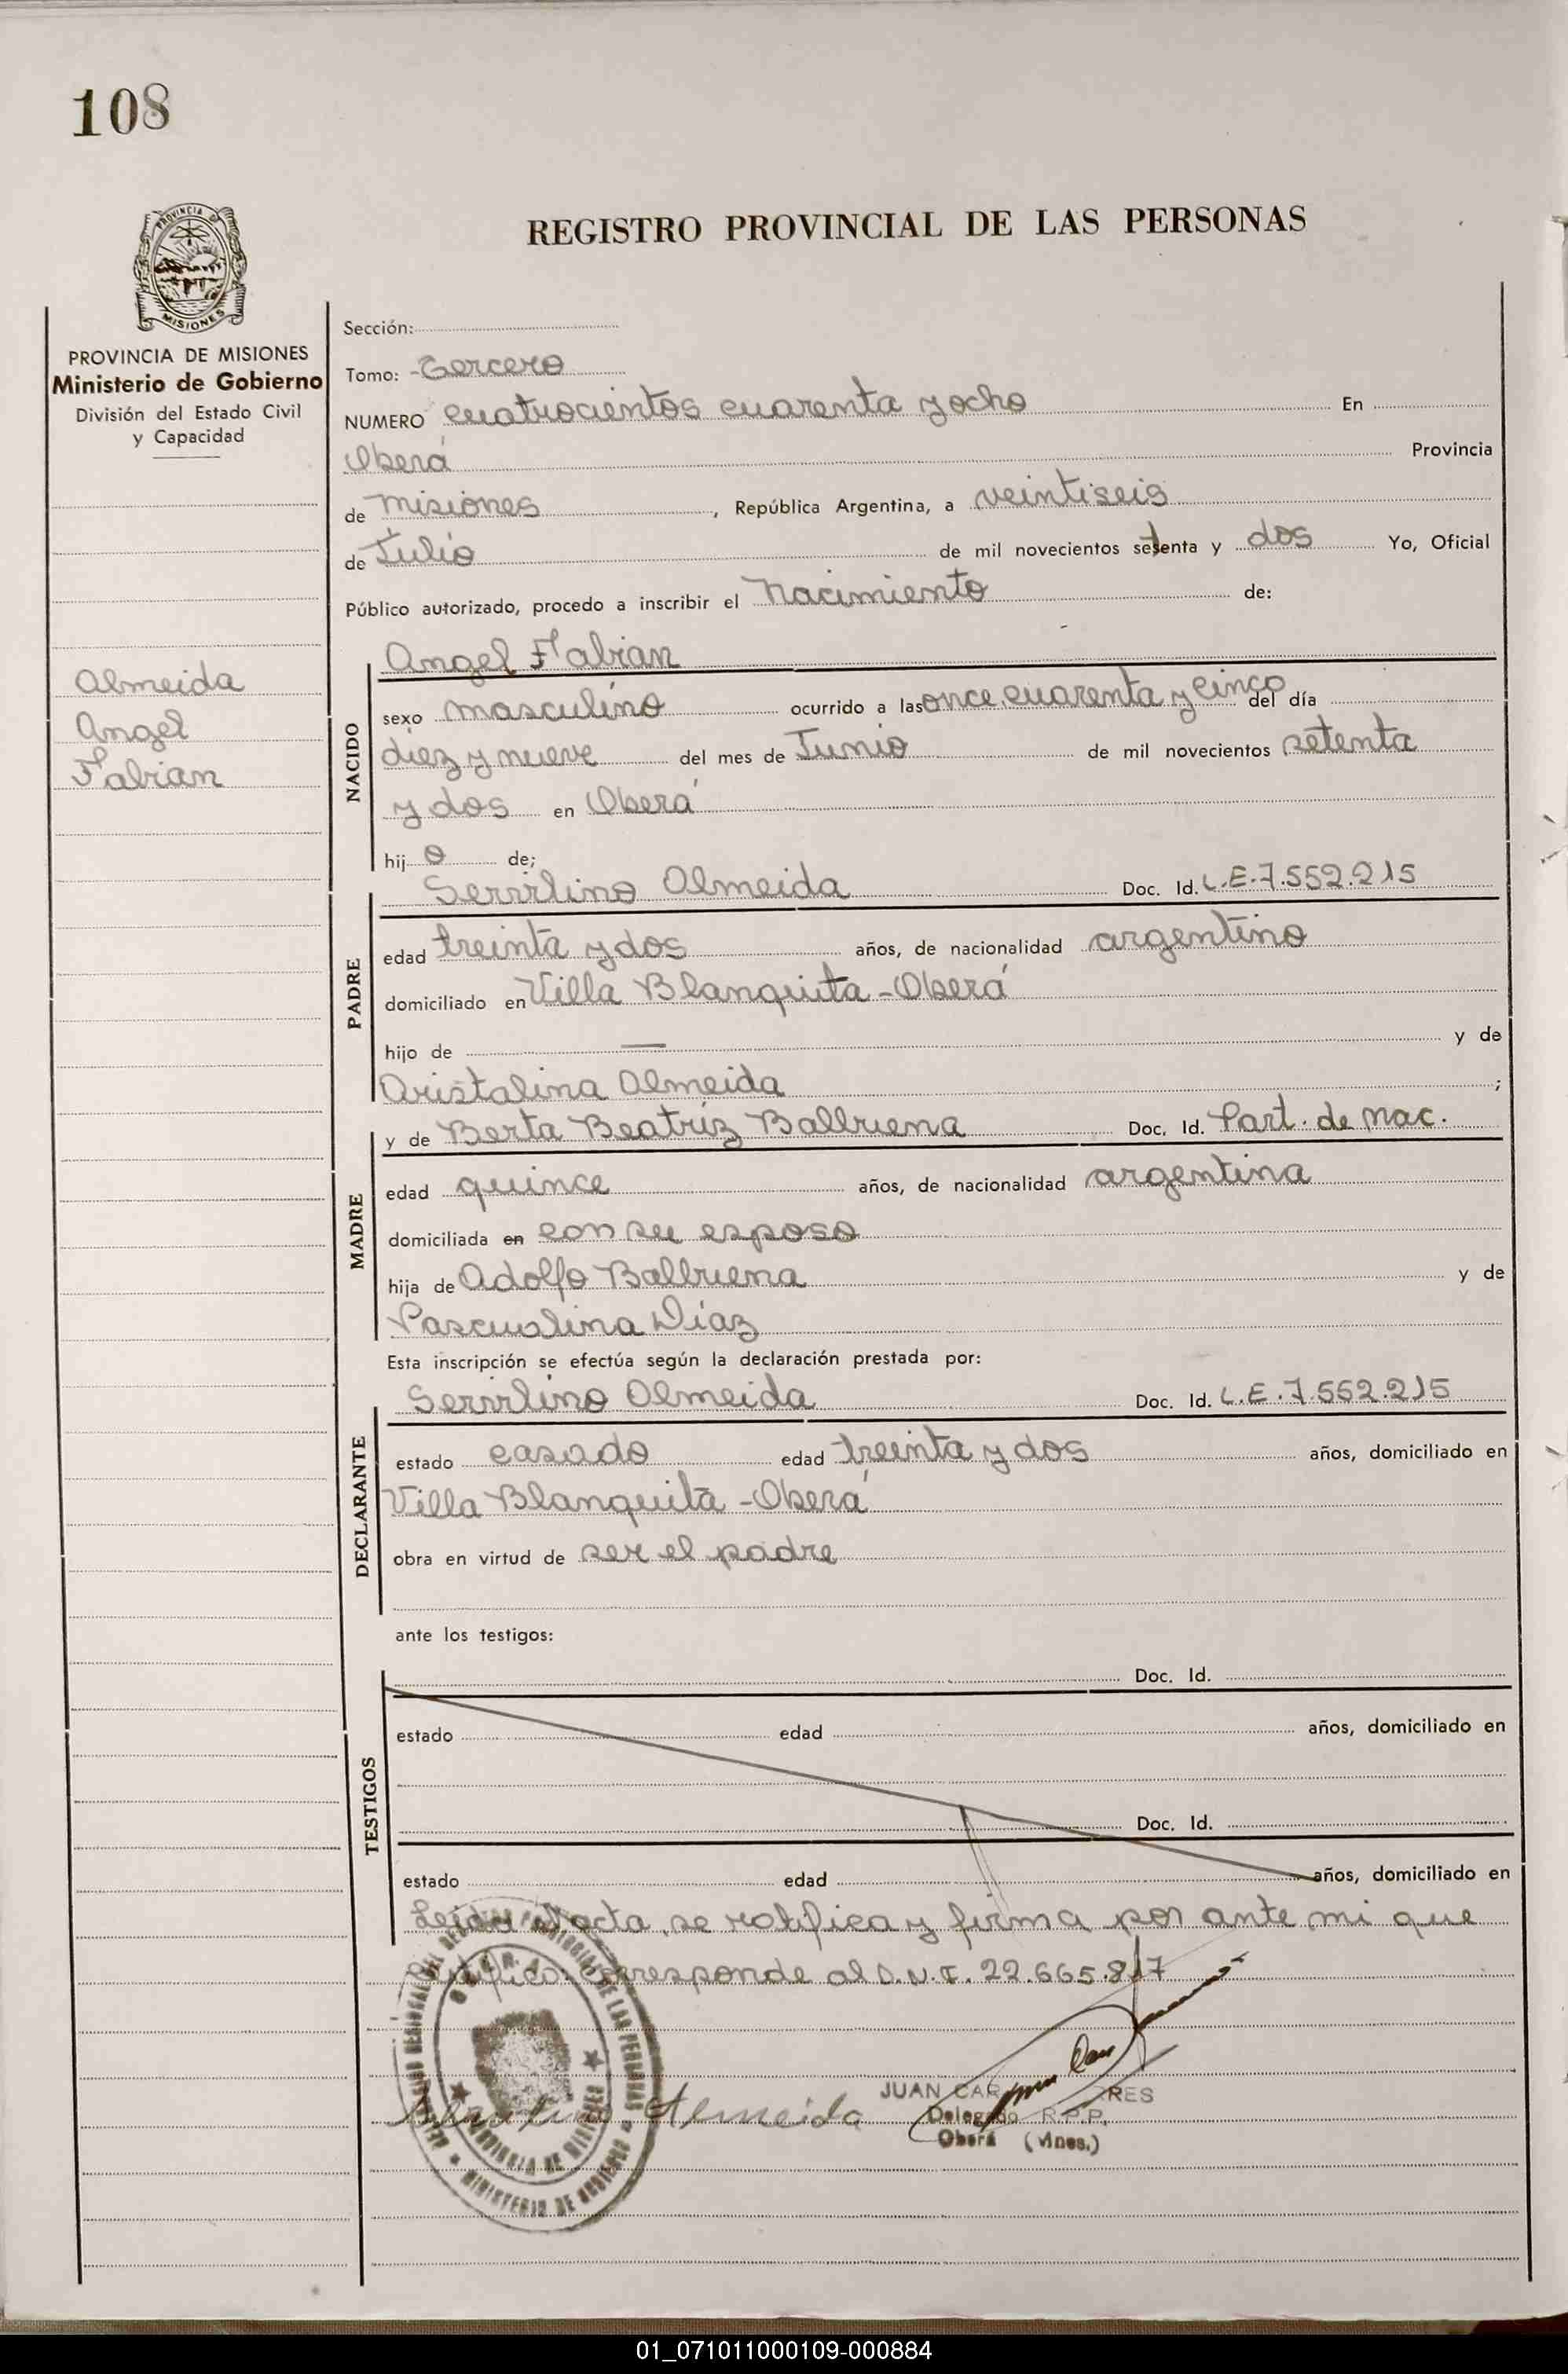 108
REGISTRO PROVINCIAL DE LAS PERSONAS
PROVINCIA DE MISIONES
PROVINCIA DE MISIONES
Ministerio de Gobierno
División del Estado Civil
y Capacidad
Almeida
Angel
Fabian
Sección:
Tomo: Tercero
NUMERO cuatrocientos cuarenta y ocho En
Oberá Provincia
de Misiones, República Argentina, a veintiseis
de Julio de mil novecientos setenta y dos Yo, Oficial
Público autorizado, procedo a inscribir el Nacimiento de:
Angel Fabian
NACIDO
sexo masculino ocurrido a las once, cuarenta y cinco del día
diez y nueve del mes de Junio de mil novecientos setenta
y dos en Oberá
hij o de;
Servilino Almeida Doc. Id. L.E.7.552.215
PADRE
edad treinta y dos años, de nacionalidad argentino
domiciliado en Villa Blanquita - Oberá
hijo de — y de
Aristalina Almeida ;
MADRE
y de Berta Beatríz Balbuena Doc. Id. Part. de Nac.
edad quince años, de nacionalidad argentina
domiciliada en con su esposo
hija de Adolfo Balbuena y de
Pascualina Díaz
Esta inscripción se efectúa según la declaración prestada por:
Servilino Almeida Doc. Id. L.E.7.552.215
DECLARANTE
estado casado edad treinta y dos años, domiciliado en
Villa Blanquita - Oberá
obra en virtud de ser el padre
ante los testigos:
TESTIGOS
Doc. Id.
estado edad años, domiciliado en
Doc. Id.
estado edad años, domiciliado en
Leída el acta, se ratifica y firma por ante mi que
corresponde al D.N.I. 22.665.817
Almeida
JUAN CAR RES
Delegado R.P.P.
Oberá (Mnes.)
PROVINCIA DE MISIONES
MINISTERIO DE GOBIERNO
01_071011000109-000884